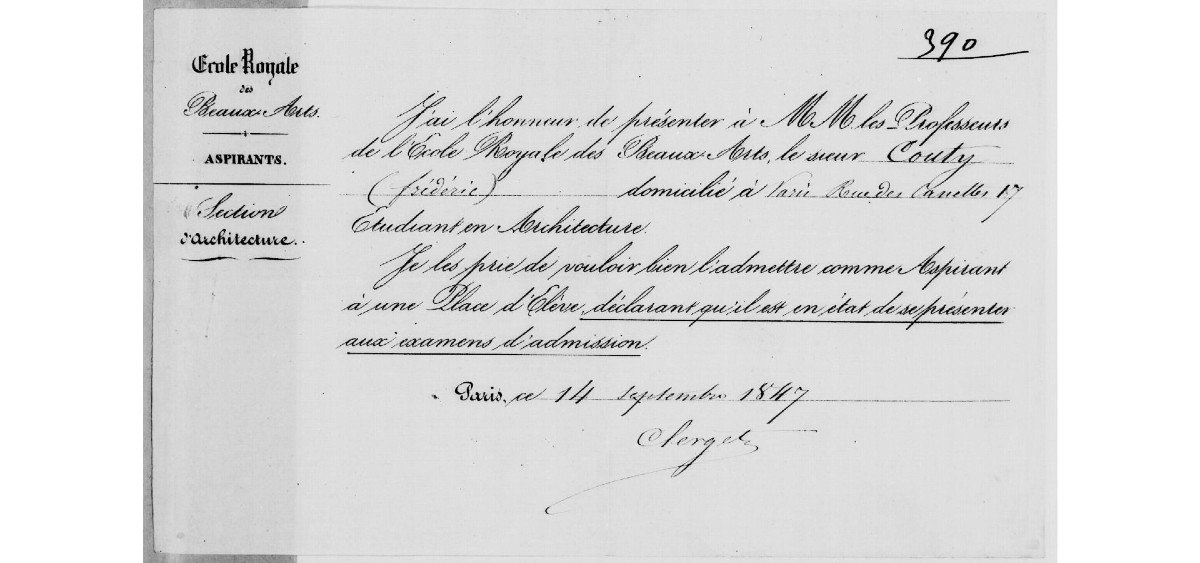 390
Ecole Royale
des
Beaux-Arts.
ASPIRANTS.
Section
d'Architecture.
J'ai l'honneur de présenter à MM les Professeurs
de l'Ecole Royale des Beaux Arts, le sieur Couty
(frédéric) domicilié à Paris Rue des Canettes 17
Etudiant en Architecture.
Je les prie de vouloir bien l'admettre comme Aspirant
à une Place d'Elève, déclarant qu'il est en état de se présenter
aux examens d'admission.
Paris, ce 14 septembre 1847
Clerget